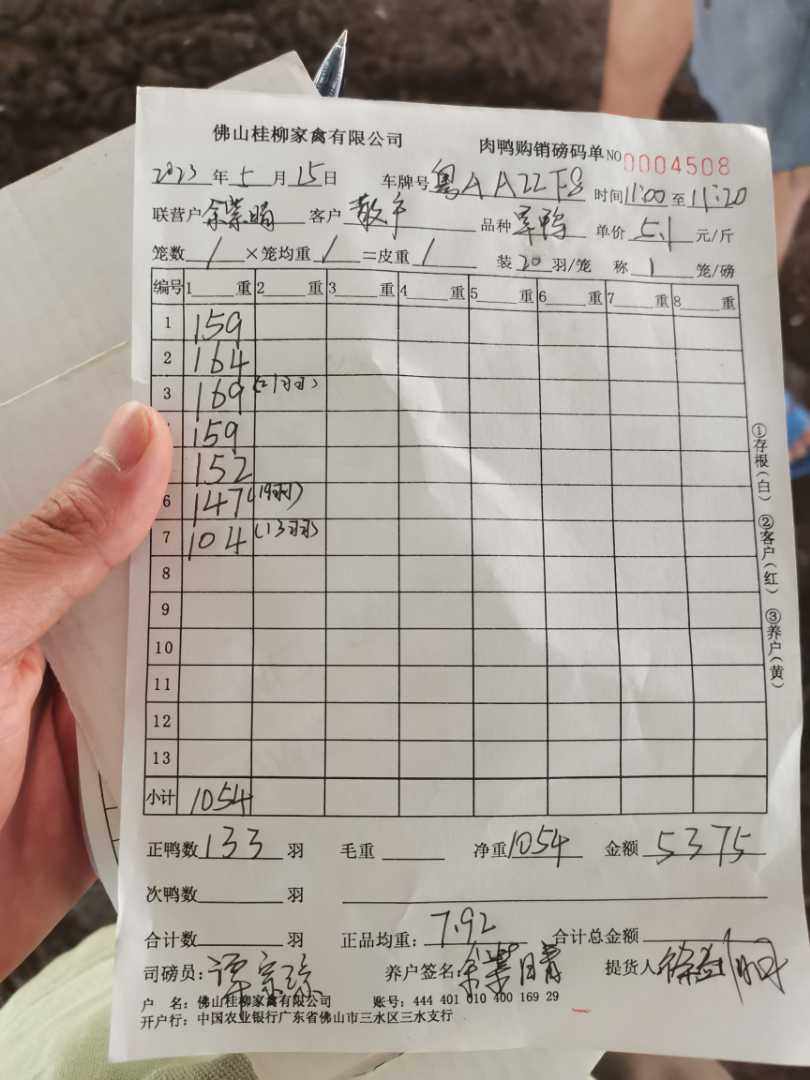 佛山桂柳家禽有限公司 肉鸭购销磅码单 NO 0004508
2023年5月15日 车牌号 粤A A22F8 时间11:00至11:20
联营户 余業晴 客户 散户 品种 草鸭 单价 5.1 元/斤
笼数 / ×笼均重 / =皮重 / 装 20 羽/笼 称 1 笼/磅
编号 1 重 2 重 3 重 4 重 5 重 6 重 7 重 8 重
1 159
2 164
3 169 (21羽)
159
152
6 147 (19羽)
7 104 (13羽)
8
9
10
11
12
13
小计 1054
正鸭数 133 羽 毛重 净重 1054 金额 5375
次鸭数 羽
合计数 羽 正品均重: 7.92 合计总金额
司磅员: 养户签名: 余業晴 提货人
户 名: 佛山桂柳家禽有限公司 账号: 444 401 010 400 169 29
开户行: 中国农业银行广东省佛山市三水区三水支行
①存根(白) ②客户(红) ③养户(黄)